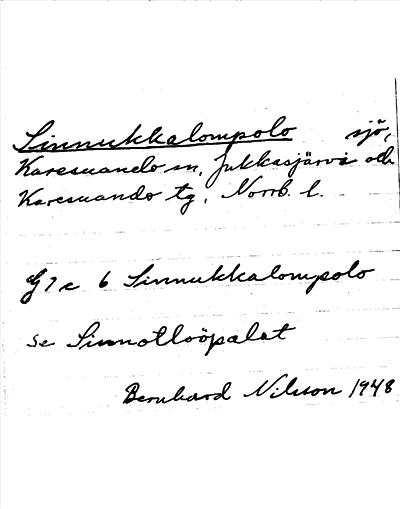 Sinnukkalompolo sjö,
Karesuando sn, Jukkasjärvi och
Karesuando tg, Norrb. l.
7 c 6 Sinnukkalompolo
se Sinnotloöpalat
Bernhard Nilsson 1948